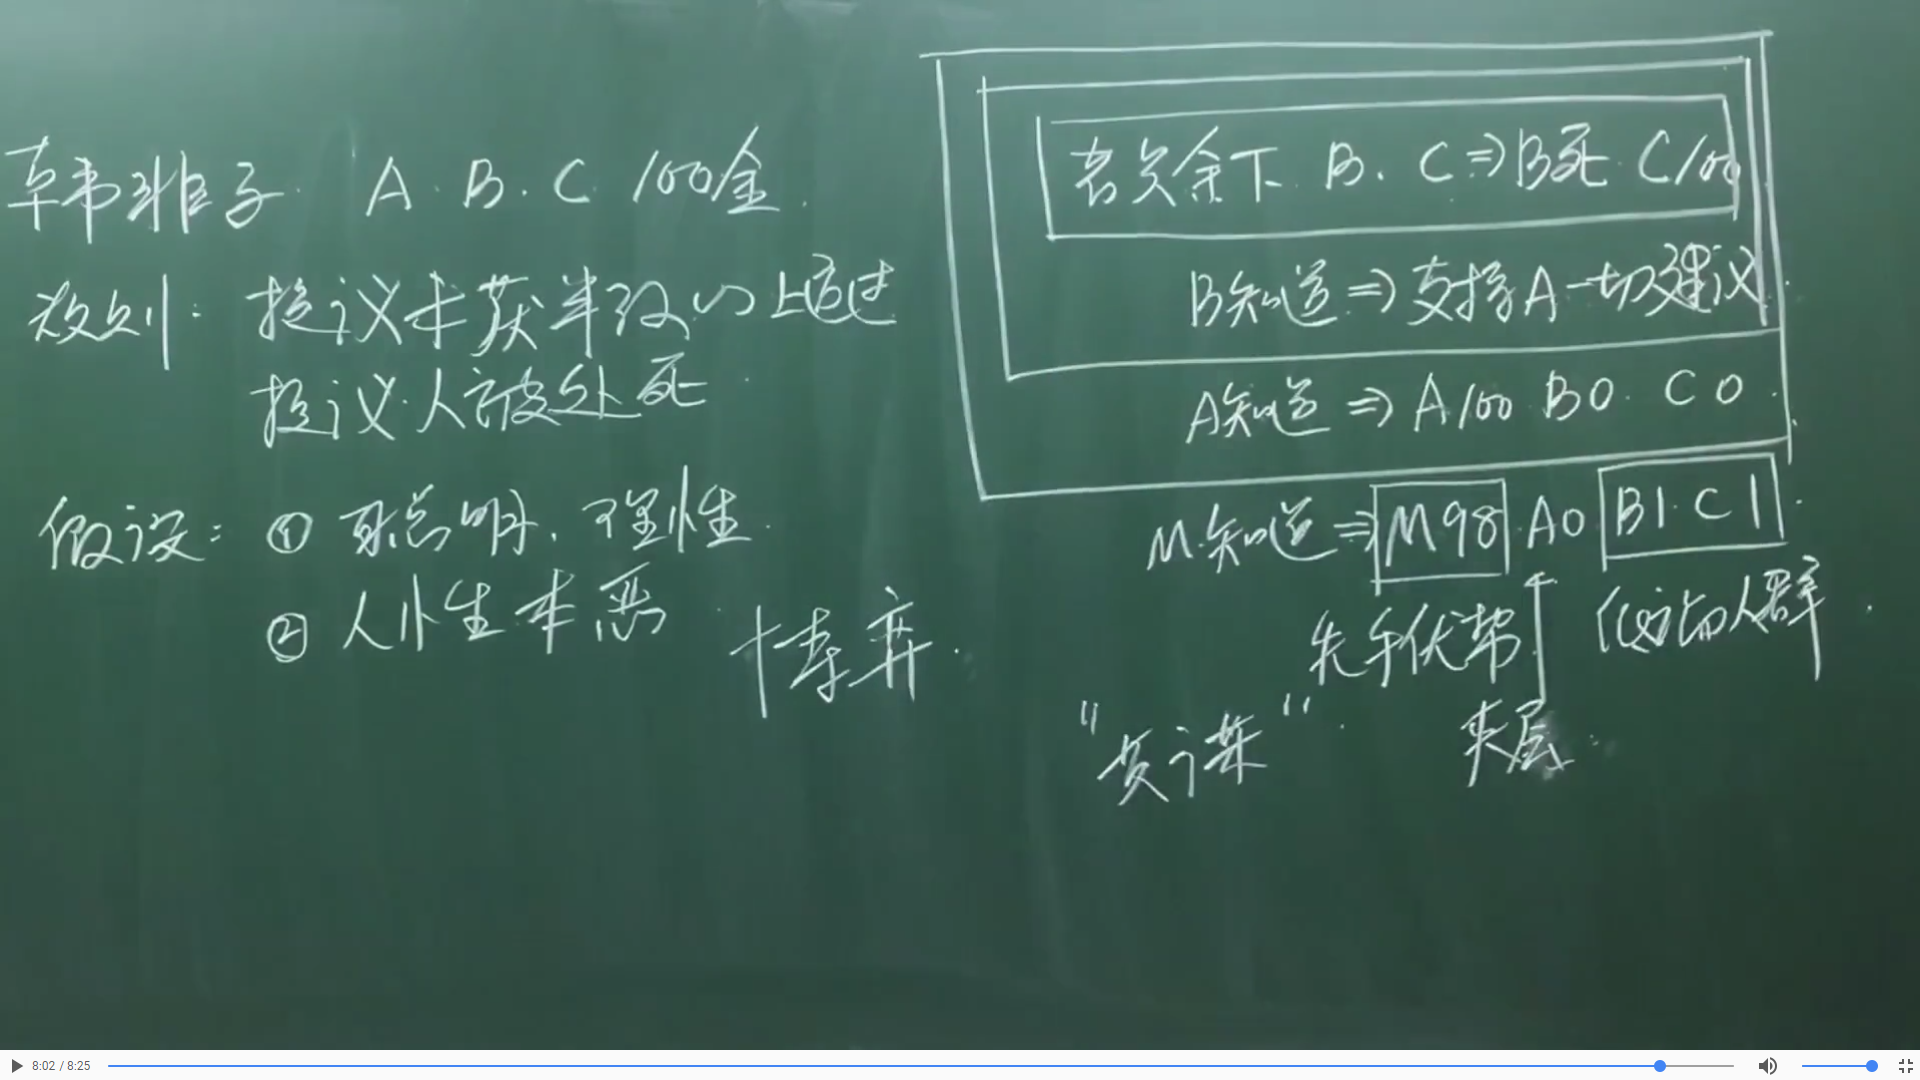 韩非子. A. B. C 100金.
规则: 提议未获半数以上通过
提议人被处死.
假设: ① 聪明、理性.
② 人性本恶
博弈.
若只余下 B. C ⇒ B死 C100
B知道 ⇒ 支持A一切建议.
A知道 ⇒ A100 B0. C0.
M知道 ⇒ M98 A0 B1. C1.
先手优势. 低价的人群.
夹层.
8:02 / 8:25